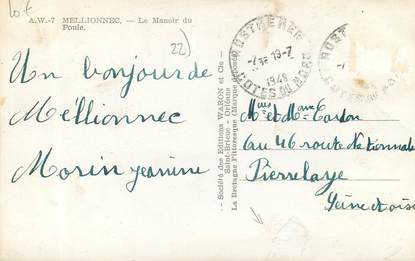 Lot
A.W.-7 MELLIONNEC. — Le Manoir du
Poule.
22)
Un bonjour de
Mellionnec
Morin Jeanine
Société des Editions WARON et Cie -
Saint-Brieuc - Orléans
La Bretagne Pittoresque (Marque déposée)
ROSTRENEN
19-7
1948
COTES DU NORD
ROST
et Mme
au 46 route Nationale
Pierrelaye
Seine et oise